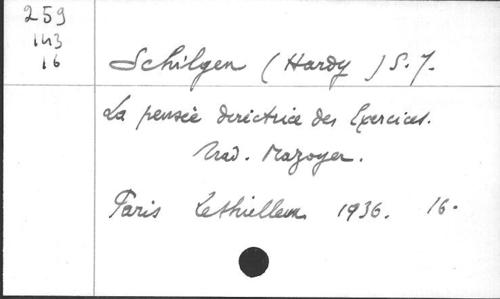 259
143
16
Schilgen (Hardy) S.J.
La pensée directrice des Exercices.
Trad. Mazoyer.
Paris Lethielleux 1936. 16.